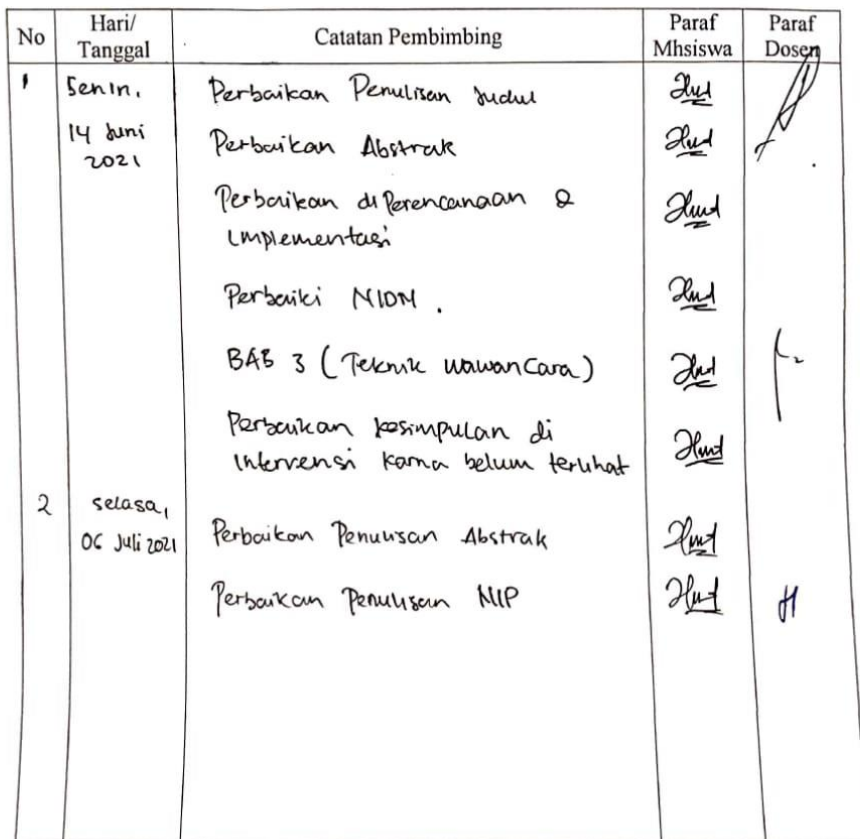 No Hari/ Catatan Pembimbing Paraf Paraf
Tanggal Mhsiswa Dosen
1 Senin, Perbaikan Penulisan Judul
14 Juni Perbaikan Abstrak
2021
Perbaikan di Perencanaan &
implementasi
Perbaiki NIDN.
BAB 3 (Teknik wawancara)
Perbaikan kesimpulan di
intervensi karna belum terlihat
2 selasa,
06 Juli 2021 Perbaikan Penulisan Abstrak
Perbaikan Penulisan NIP